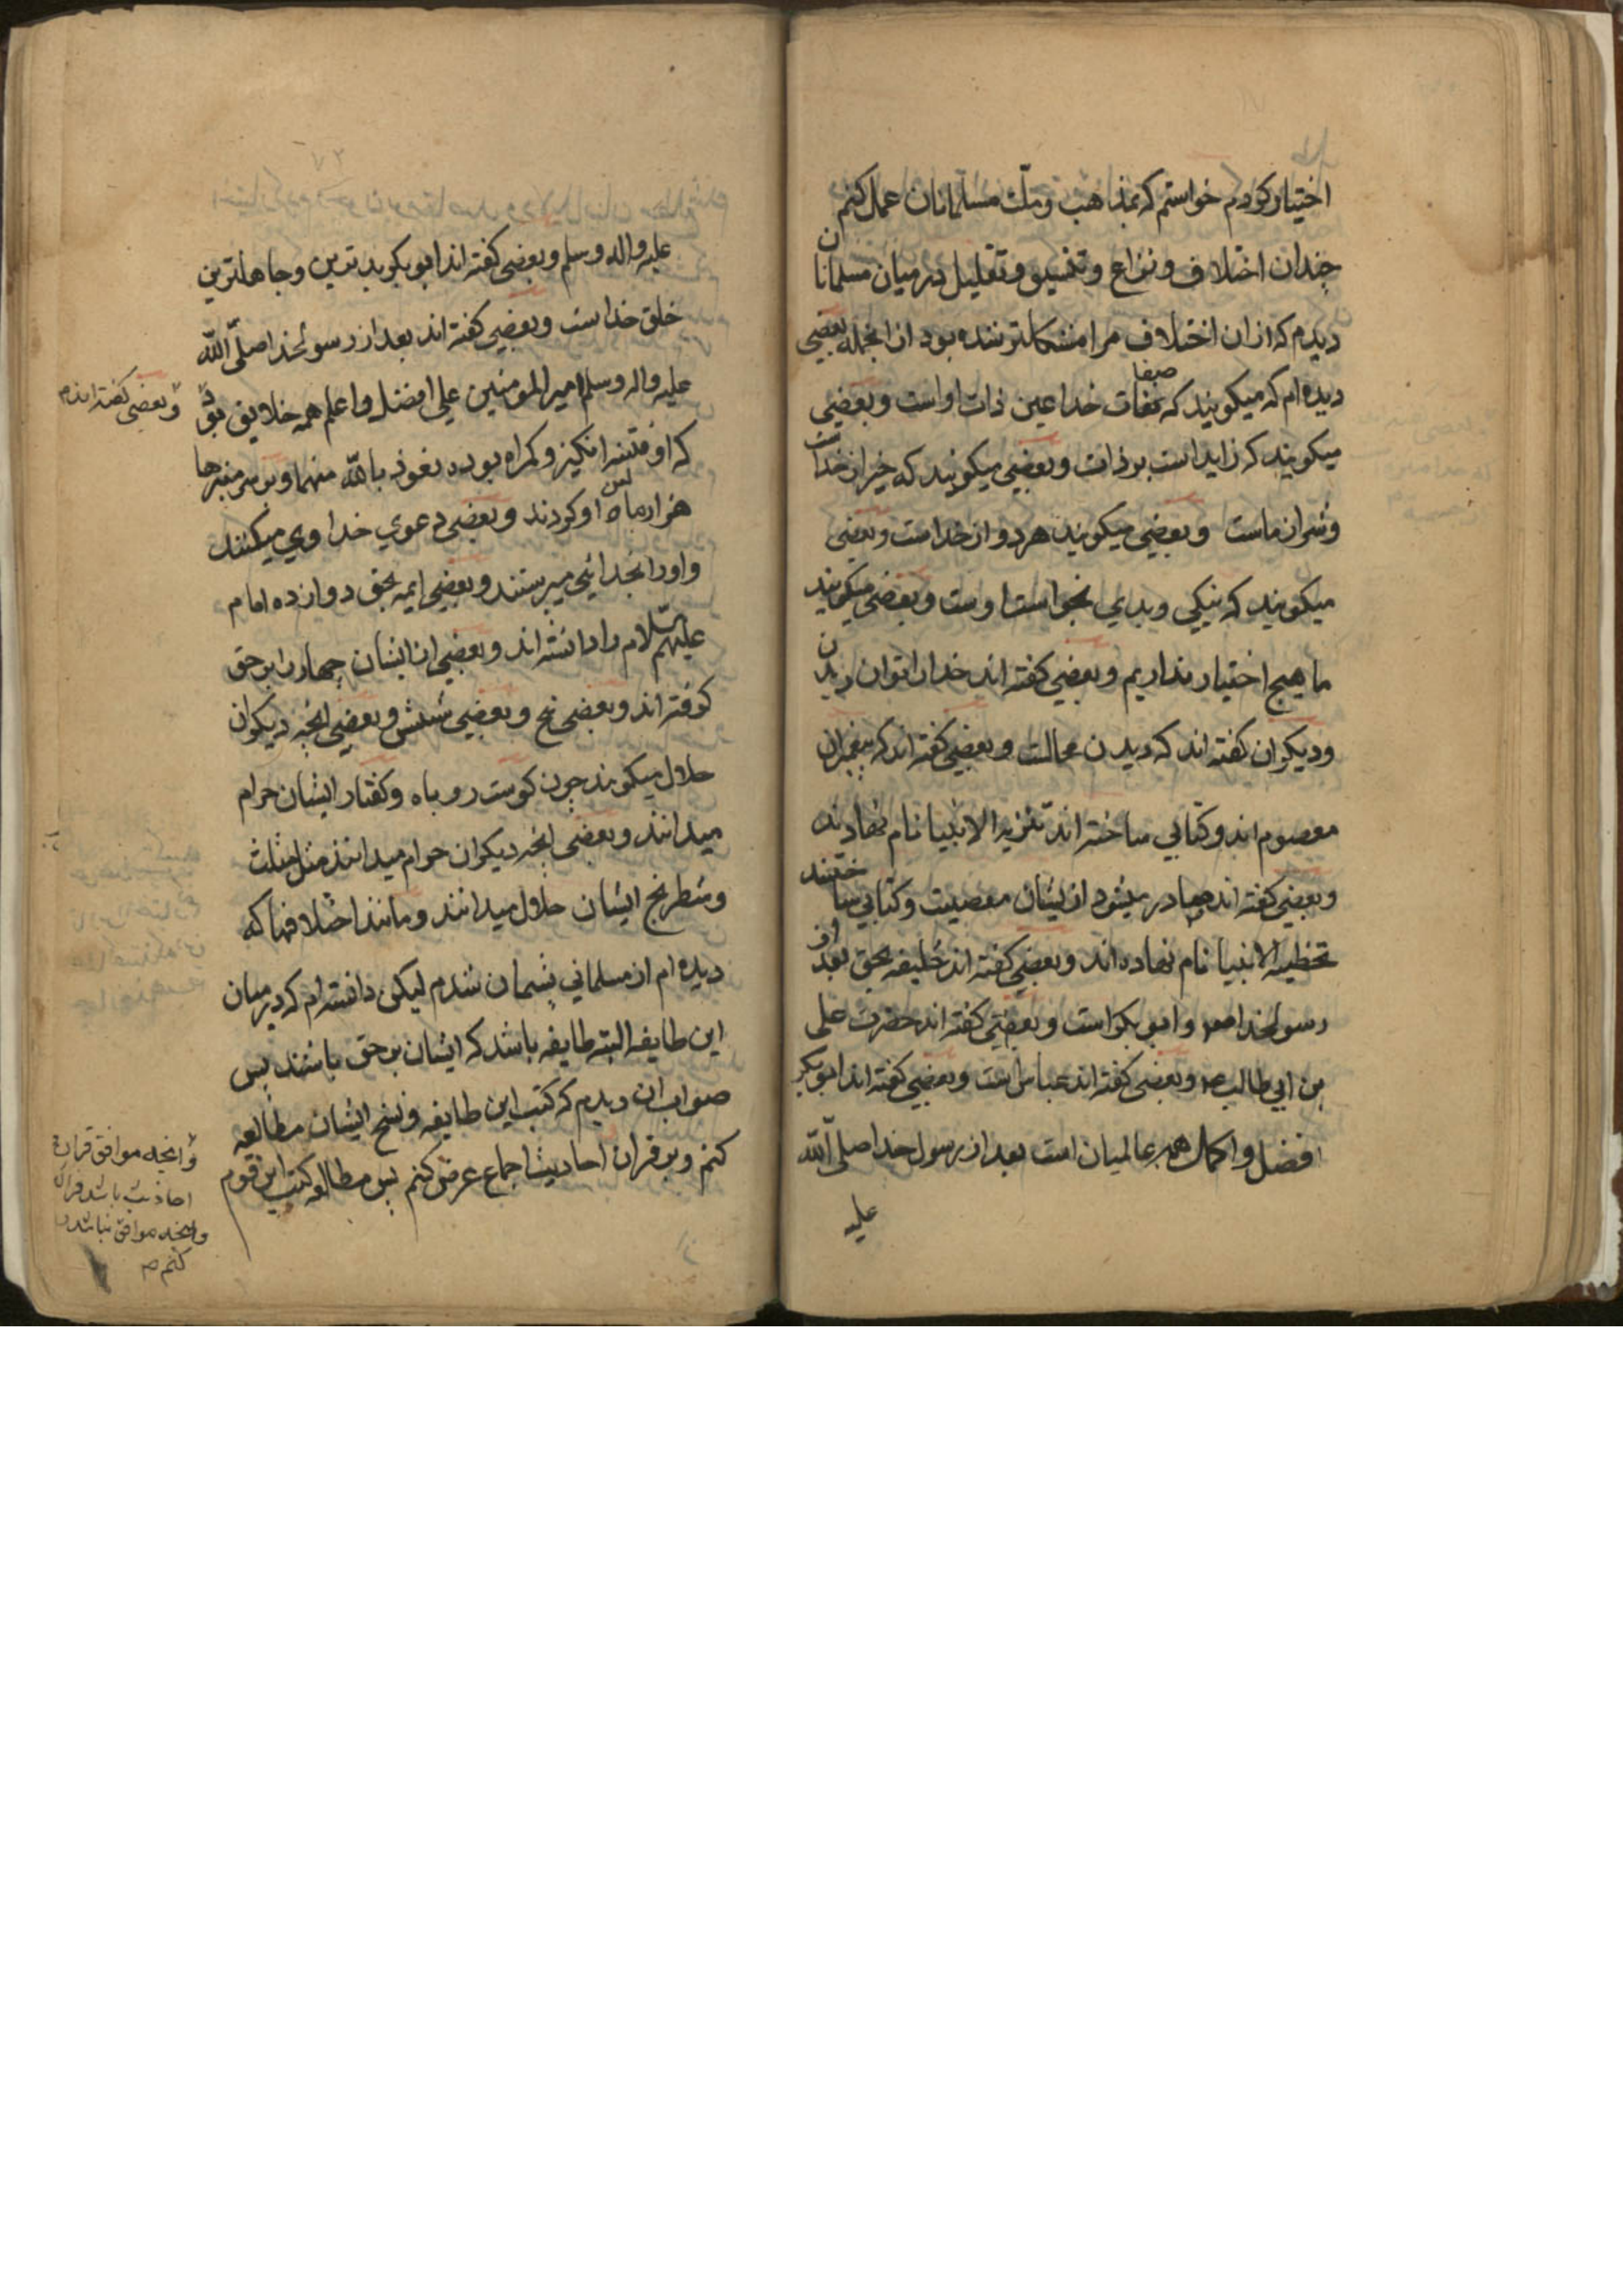 اختیار کردم خواستم که بمذاهب و ملّت مسلمانان عمل کنم
چندان اختلاف و نزاع و تفسیق و تضلیل در میان مسلمانان
دیدم که از ان اختلاف مرا مشکلتر شده بود از انجمله بعضی
دیده ام که میکویند که صفات خدا عین ذات اوست و بعضی
میکویند که زاید است بر ذات و بعضی میکویند که خیر از خداست
و شر از ماست و بعضی میکویند هر دو از خداست و بعضی
میکویند که نیکی و بدی بخواست اوست و بعضی میکویند
ما هیچ اختیار نداریم و بعضی کفته اند خدا را توان دیدن
و دیکران کفته اند که دیدن محالست و بعضی کفته اند که پیغمبران
معصوم اند و کتابی ساخته اند تنزیه الانبیا نام نهادند
و بعضی کفته اند صادر میشود از ایشان معصیت و کتابی ساختند
تخطیه الانبیا نام نهاده اند و بعضی کفته اند خلیفه بحق بعد از
رسولخدا ابو بکر است و بعضی کفته اند حضرت علی
بن ابی طالب و بعضی کفته اند عباس است و بعضی کفته اند ابو بکر
افضل و اکمل همه عالمیان است بعد از رسول خدا صلی اللّه
علیه
علیه واله وسلم و بعضی کفته اند ابو بکر بدترین و جاهلترین
خلق خداست و بعضی کفته اند بعد از رسولخدا صلّی اللّه
علیه واله وسلم امیر المومنین علی افضل و اعلم همه خلایق بود
و بعضی کفته اند
که او فتنه انکیز و کمراه بوده نعوذ بالله منهما و بر سر منبرها
هزار ماه لعن او کردند و بعضی دعوی خداوی میکنند
و اورا بخدائی میپرستند و بعضی ایمه بحق دوازده امام
علیهم السّلام را دانسته اند و بعضی از ایشان چهار را بر حق
کرفته اند و بعضی پنج و بعضی شش و بعضی انچه دیکران
حلال میکویند چون کوست روباه و کفتار ایشان حرام
میدانند و بعضی انچه دیکران حرام میدانند مثل مثلث
و شطرنج ایشان حلال میدانند و مانند اختلافها که
دیده ام از مسلمانی پشیمان شدم لیکن دانسته ام که در میان
این طایفه البته طایفه باشد که ایشان بر حق باشند پس
صواب ان دیدم که کتب این طایفه و نسخ ایشان مطالعه
کنم و بر قران احادیث اجماع عرض کنم پس مطالعه کتب این قوم
و انچه موافق قران
احادیث باشد
و انچه موافق نباشد
کنم